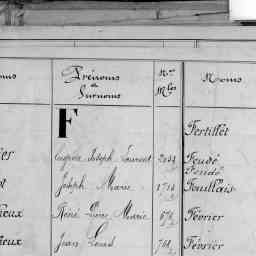 oms Prénoms et Surnoms Nos Mles Noms
F Fertillet
Eugène Joseph Laurent 2044 Feudé
Feudé
Joseph Marie 1714 Feuillais
ieux René Pierre Marie 676 Février
ieux Jean Louis 761 Février